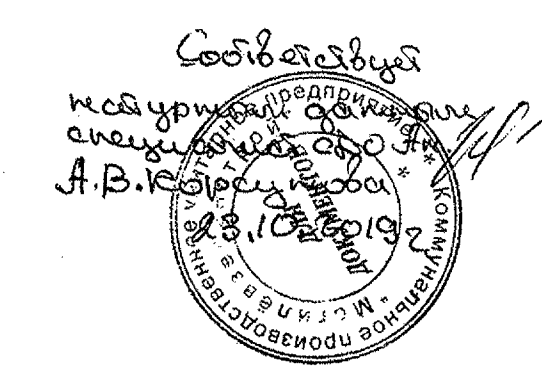 Соответствует
натурным данным
специалист
А.В. Корсунова
23.10.2019 г
Коммунальное производственное унитарное предприятие
"Могилёвзеленстрой"
ДЛЯ
ДОКУМЕНТОВ